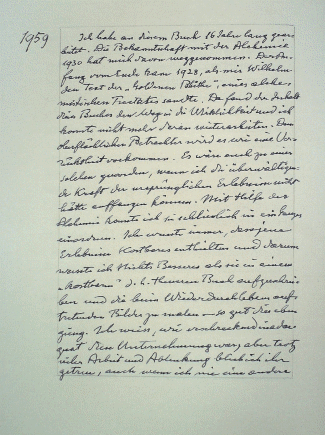 1959
Ich habe an diesem Buch 16 Jahre lang gear-
beitet. Die Bekanntschaft mit der Alchemie
1930 hat mich davon weggenommen. Der An-
fang vom Ende kam 1928, als mir Wilhelm
den Text der „Goldenen Blüthe", eines alchem-
istischen Tractates sandte. Da fand der Inhalt
dieses Buches den Weg in die Wirklichkeit und ich
konnte nicht mehr daran weiterarbeiten. Dem
oberflächlichen Betrachter wird es wie eine Ver-
rücktheit vorkommen. Es wäre auch zu einer
solchen geworden, wenn ich die überwältigen-
de Kraft der ursprünglichen Erlebnisse nicht
hätte auffangen können. Mit Hilfe der
Alchemie konnte ich sie schliesslich in ein Ganzes
einordnen. Ich wusste immer, dass jene
Erlebnisse Kostbares enthielten und darum
wusste ich Nichts Besseres als sie in einem
„kostbaren" d. h. theuren Buch aufzuschrei-
ben und die beim Wiederdurchleben auf-
tretenden Bilder zu malen — so gut dies eben
gieng. Ich weiss, wie erschreckend inadae-
quat diese Unternehmung war, aber trotz
vieler Arbeit und Ablenkung blieb ich ihr
getreu, auch wenn ich nie eine andere